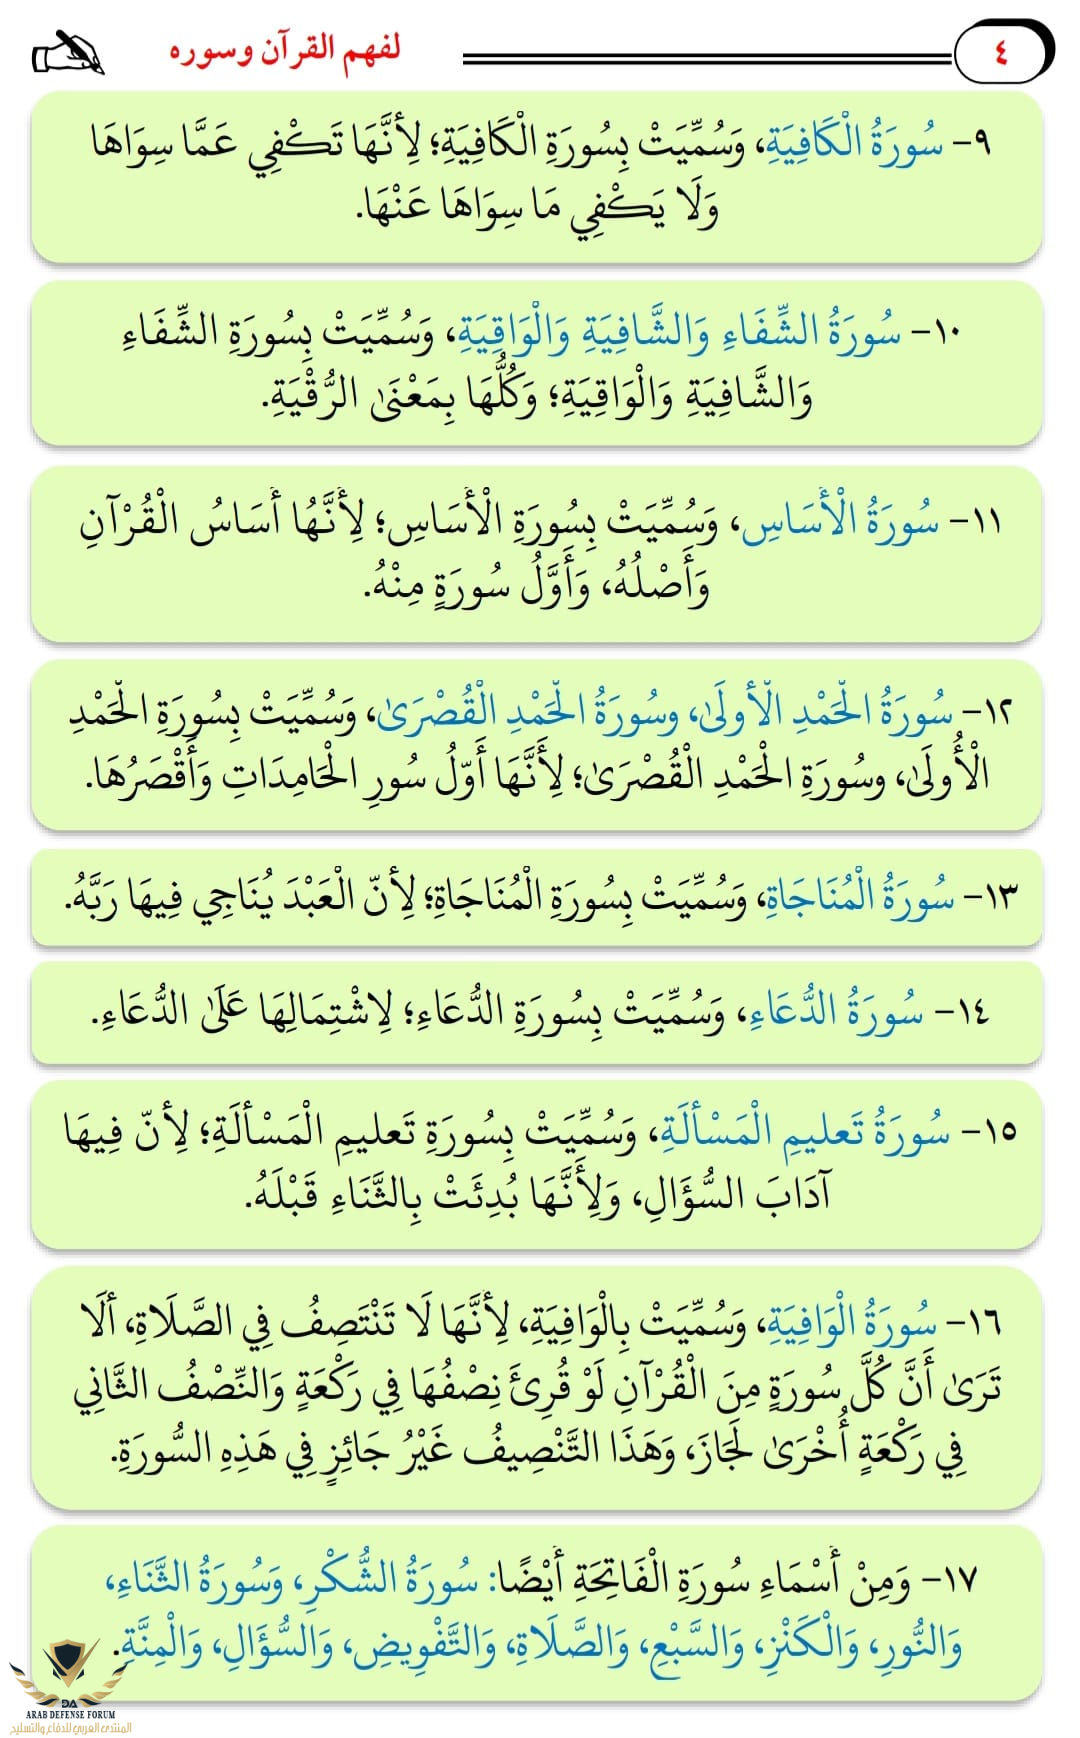 ٤
لفهم القرآن وسوره
٩- سُورَةُ الْكَافِيَةِ، وَسُمِّيَتْ بِسُورَةِ الْكَافِيَةِ؛ لِأَنَّهَا تَكْفِي عَمَّا سِوَاهَا
وَلَا يَكْفِي مَا سِوَاهَا عَنْهَا.
١٠- سُورَةُ الشِّفَاءِ وَالشَّافِيَةِ وَالْوَاقِيَةِ، وَسُمِّيَتْ بِسُورَةِ الشِّفَاءِ
وَالشَّافِيَةِ وَالْوَاقِيَةِ؛ وَكُلُّهَا بِمَعْنَى الرُّقْيَةِ.
١١- سُورَةُ الْأَسَاسِ، وَسُمِّيَتْ بِسُورَةِ الْأَسَاسِ؛ لِأَنَّهُا أَسَاسُ الْقُرْآنِ
وَأَصْلُهُ، وَأَوَّلُ سُورَةٍ مِنْهُ.
١٢- سُورَةُ الْحَمْدِ الْأُولَى، وسُورَةُ الْحَمْدِ الْقُصْرَى، وَسُمِّيَتْ بِسُورَةِ الْحَمْدِ
الْأُولَى، وسُورَةِ الْحَمْدِ الْقُصْرَى؛ لِأَنَّهَا أَوّلُ سُورِ الْحَامِدَاتِ وَأَقْصَرُهَا.
١٣- سُورَةُ الْمُنَاجَاةِ، وَسُمِّيَتْ بِسُورَةِ الْمُنَاجَاةِ؛ لِأَنّ الْعَبْدَ يُنَاجِي فِيهَا رَبَّهُ.
١٤- سُورَةُ الدُّعَاءِ، وَسُمِّيَتْ بِسُورَةِ الدُّعَاءِ؛ لِاشْتِمَالِهَا عَلَى الدُّعَاءِ.
١٥- سُورَةُ تَعليمِ الْمَسْألَةِ، وَسُمِّيَتْ بِسُورَةِ تَعليمِ الْمَسْألَةِ؛ لِأَنّ فِيهَا
آدَابَ السُّؤَالِ، وَلِأَنَّهَا بُدِئَتْ بِالثَّنَاءِ قَبْلَهُ.
١٦- سُورَةُ الْوَافِيَةِ، وَسُمِّيَتْ بِالْوَافِيَةِ، لِأَنَّهَا لَا تَنْتَصِفُ فِي الصَّلَاةِ، ألَا
تَرَى أَنَّ كُلَّ سُورَةٍ مِنَ الْقُرْآنِ لَوْ قُرِئَ نِصْفُهَا فِي رَكْعَةٍ وَالنِّصْفُ الثَّانِي
فِي رَكْعَةٍ أُخْرَى لَجَازَ، وَهَذَا التَّنْصِيفُ غَيْرُ جَائِزٍ فِي هَذِهِ السُّورَةِ.
١٧- وَمِنْ أَسْمَاءِ سُورَةِ الْفَاتِحَةِ أَيْضًا: سُورَةُ الشُّكْرِ، وَسُورَةُ الثَّنَاءِ،
وَالنُّورِ، وَالْكَنْزِ، وَالسَّبْعِ، وَالصَّلَاةِ، وَالتَّفْوِيضِ، وَالسُّؤَالِ، وَالْمِنَّةِ.
DA
ARAB DEFENSE FORUM
المنتدى العربي للدفاع والتسليح